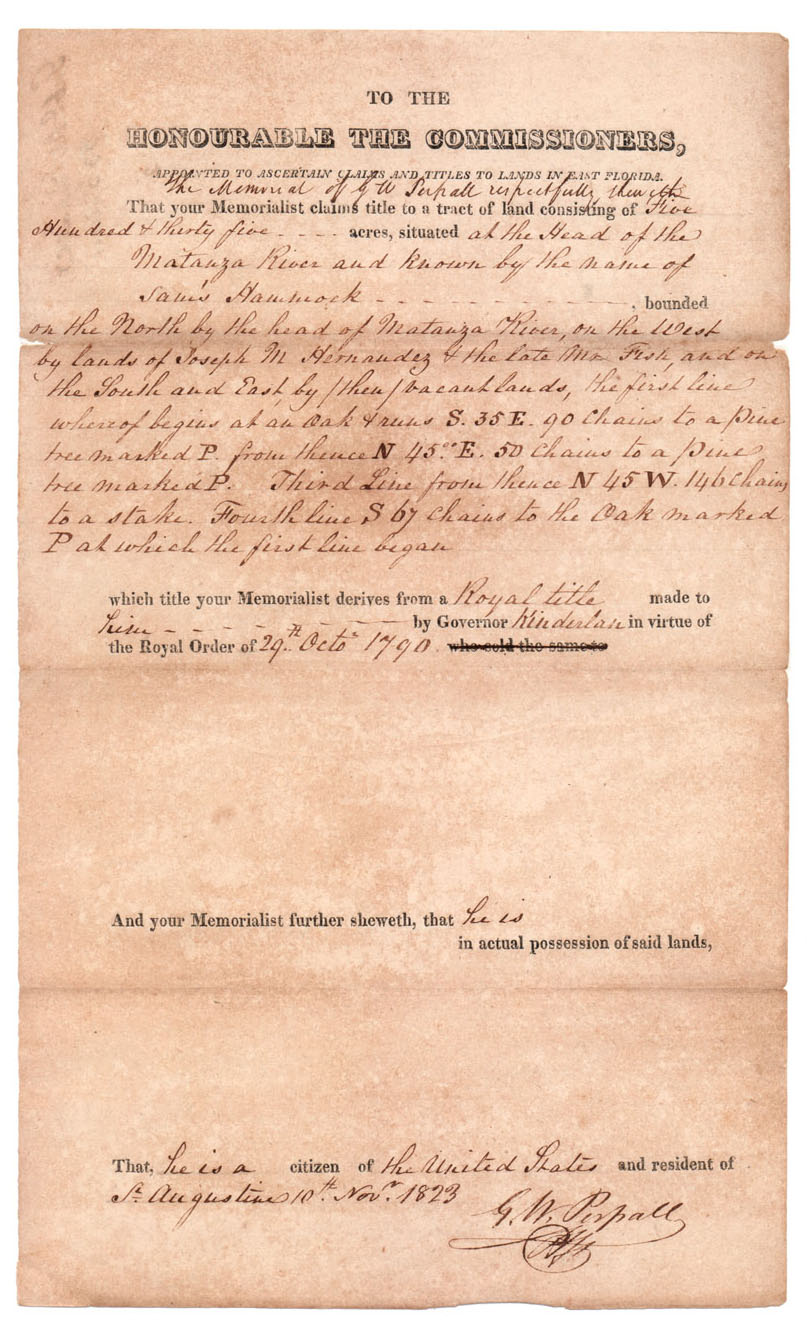 TO THE
HONOURABLE THE COMMISSIONERS,
APPOINTED TO ASCERTAIN CLAIMS AND TITLES TO LANDS IN EAST FLORIDA.
The Memorial of G W Perpall respectfully sheweth
That your Memorialist claims title to a tract of land consisting of Five
Hundred & thirty five - - - - acres, situated at the Head of the
Matanza River and known by the name of
Sam's Hammock - - - - - - - - - - , bounded
on the North by the head of Matanza River, on the West
by lands of Joseph M Hernandez & the late Mr. Fish, and on
the South and East, by (then) vacant lands, the first line
whereof begins at an Oak & runs S. 35 E. 90 Chains to a pine
tree marked P. from thence N 45.° E. 50 Chains to a pine
tree marked P. Third Line from thence N 45 W. 146 Chains
to a stake. Fourth line S 67 Chains to the Oak marked
P at which the first line began
which title your Memorialist derives from a Royal title made to
him - - - - - - - - by Governor Kinderlan in virtue of
the Royal Order of 29.th Octo.r 1790. who sold the same to
And your Memorialist further sheweth, that he is
in actual possession of said lands,
That, he is a citizen of the United States and resident of
St. Augustine 10th. Nov.r 1823
G. W. Perpall